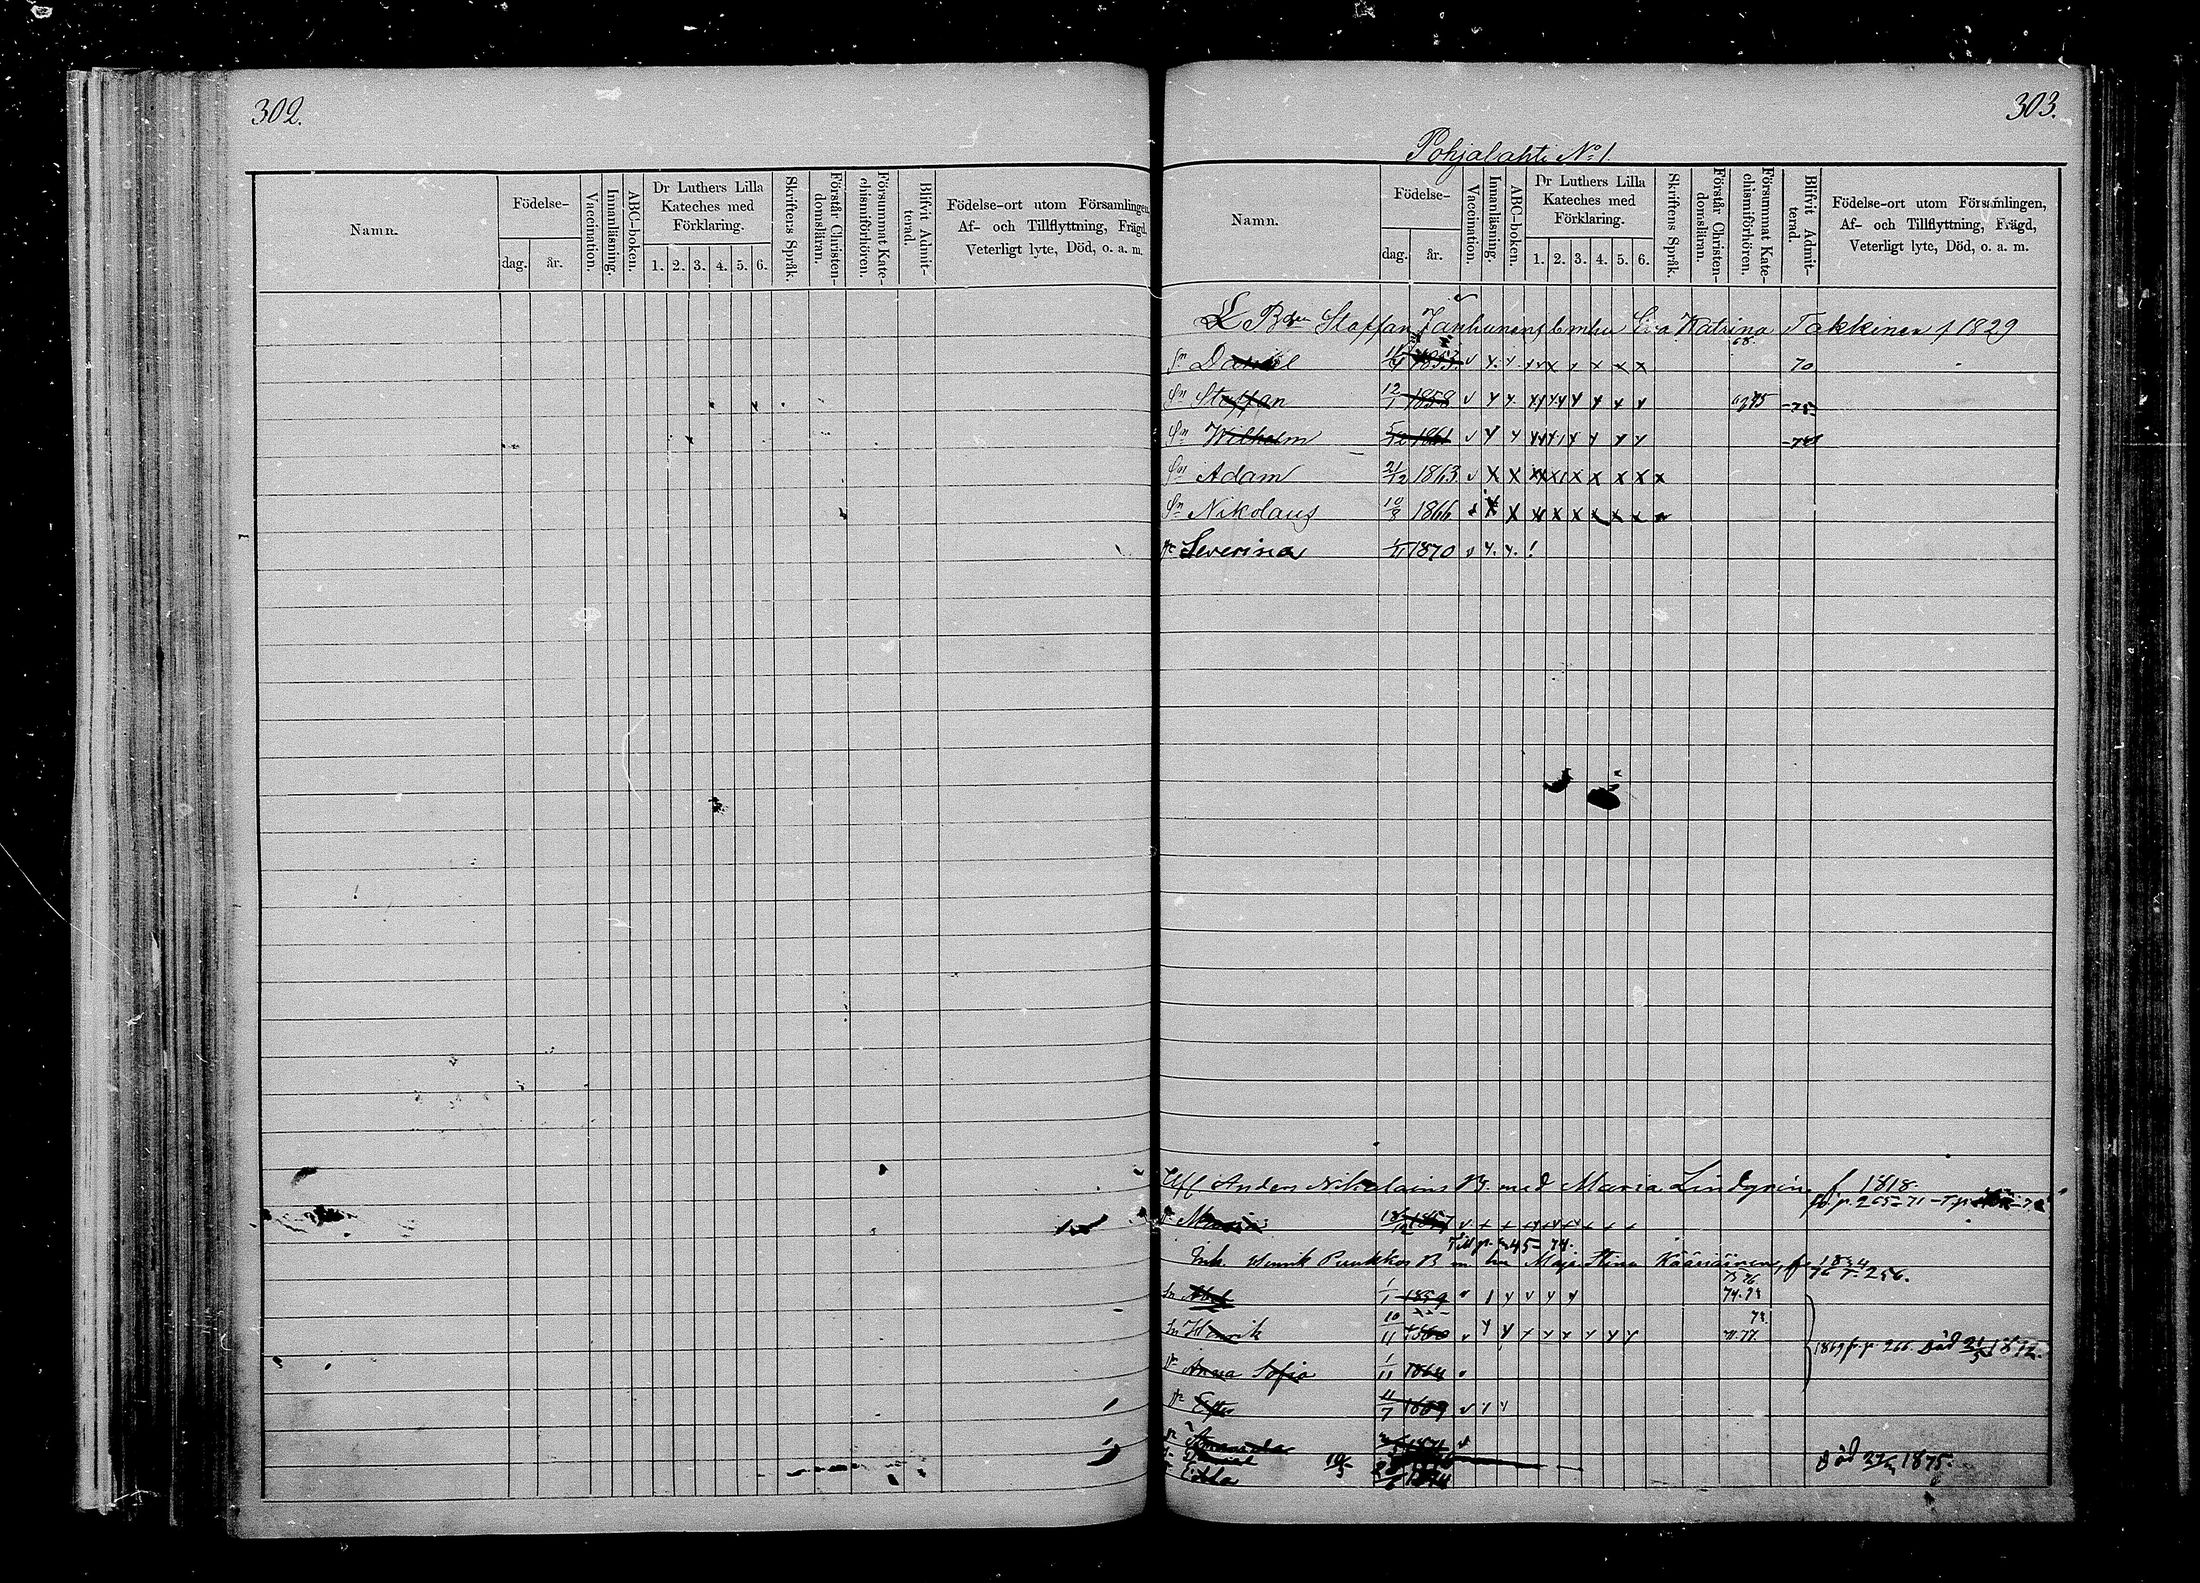 302.
Namn.
Födelse-
dag. år.
Vaccination.
Innanläsning.
ABC-boken.
Dr Luthers Lilla
Kateches med
Förklaring.
1. 2. 3. 4. 5. 6.
Skriftens Språk.
Förstår Christen-
domsläran.
Försummat Kate-
chismiförhören.
Blifvit Admit-
terad.
Födelse-ort utom Församlingen,
Af- och Tillflyttning, Frägd,
Veterligt lyte, Död, o. a. m.
303.
Pohjalahti No 1.
Namn.
Födelse-
dag. år.
Vaccination.
Innanläsning.
ABC-boken.
Dr Luthers Lilla
Kateches med
Förklaring.
1. 2. 3. 4. 5. 6.
Skriftens Språk.
Förstår Christen-
domsläran.
Försummat Kate-
chismiförhören.
Blifvit Admit-
terad.
Födelse-ort utom Församlingen,
Af- och Tillflyttning, Frägd,
Veterligt lyte, Död, o. a. m.
Staffan Janhunens b m hu Eva Katrina Takkinen f 1829
68.
Sn Daniel 1853 v 70
Sn Staffan 12/1 1858 v 75
Sn Wilhelm 1861 v
Sn Adam 21/12 1863 v x x
Sn Nikolaus 10/8 1866
Dr Severina 1870
Anders Nikolainens B. med Maria Lindgren f 1818
p. 265-71
Dr Maria 1857
Till p. 245-74.
Inh. Henrik Puukkos B m hu Maja Stina Kääriäinen, f. 1834
T. 256.
75 76
Sn Abel 1/1 1859 74.
Sn Henrik 10/11 1860 77.
1869 fr. p. 266. Död 31/5 1872.
Dr Anna Sofia 1/11 1864
Dr Ester 11/7 1869
Dr Amanda 1871
Sn Daniel Död 1875.
Dr Edla 1874